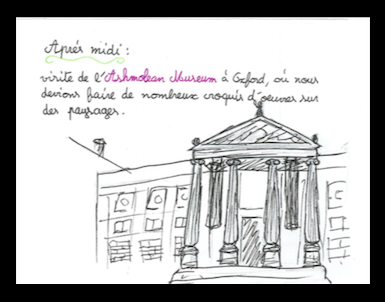 Après midi :
visite de l'Ashmolean Museum à Oxford, où nous
devions faire de nombreux croquis d'oeuvres sur
des paysages.